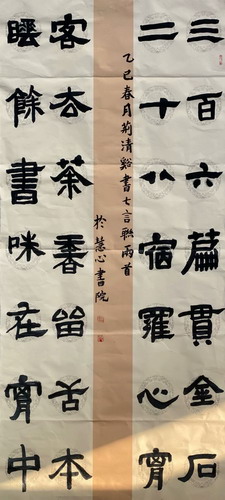 三百六篇貫金石
二十八宿羅心胷
乙巳春月荊清谿書七言聯兩首
於慧心書院
客去茶香留舌本
睡餘書味在胷中